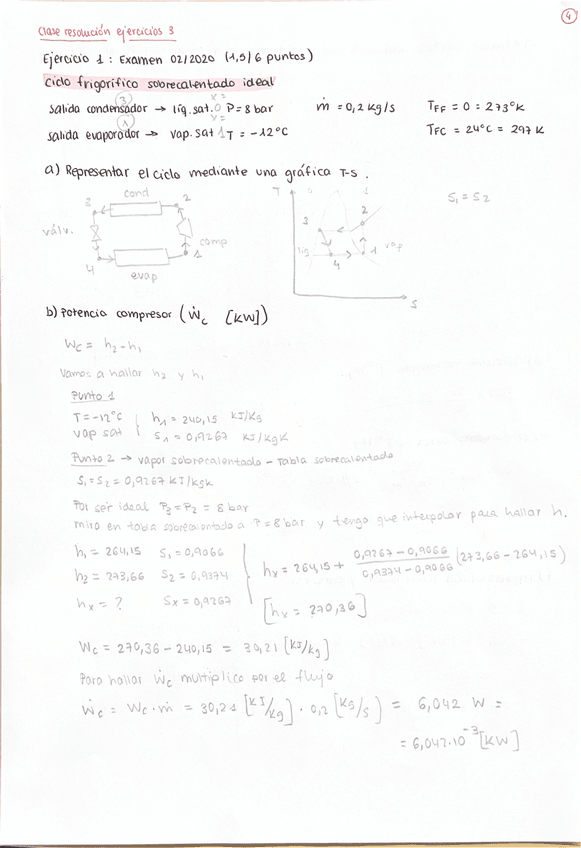 4
Clase resolución ejercicios 3
Ejercicio 1 : Examen 02/2020 (1,5/6 puntos)
Ciclo frigorífico sobrecalentado ideal
3 x=
salida condensador → líq. sat. 0 P = 8 bar ṁ = 0,2 kg/s TFF = 0 = 273°K
1 x=
salida evaporador → vap. sat 1 T = -12°C TFC = 24°C = 297 K
a) Representar el ciclo mediante una gráfica T-S.
cond
3 2
válv.
comp
4 1
evap
T 0 1
2
3
líq 1 vap
4
S
S1 = S2
b) Potencia compresor (Ẇc [KW])
Wc = h2 - h1
Vamos a hallar h2 y h1
Punto 1
T = -12°C h1 = 240,15 KJ/Kg
vap sat S1 = 0,9267 KJ/kgK
Punto 2 → vapor sobrecalentado - Tabla sobrecalentado
S1 = S2 = 0,9267 KJ/kgk
Por ser ideal P3 = P2 = 8 bar
miro en tabla sobrecalentado a P = 8 bar y tengo que interpolar para hallar h.
h1 = 264,15 S1 = 0,9066
h2 = 273,66 S2 = 0,9374
hx = ? Sx = 0,9267
hx = 264,15 + 0,9267 - 0,9066 / 0,9374 - 0,9066 (273,66 - 264,15)
[hx = 270,36]
Wc = 270,36 - 240,15 = 30,21 [KJ/kg]
Para hallar ẇc multiplico por el flujo
ẇc = Wc · ṁ = 30,21 [KJ/kg] · 0,2 [kg/s] = 6,042 W =
= 6,042·10⁻³ [KW]